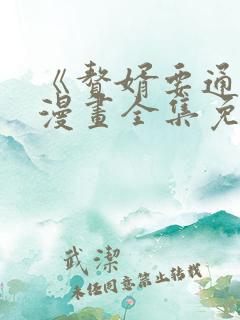 《贅婿要通
漫畫全集免
武潔
未经同意禁止转载